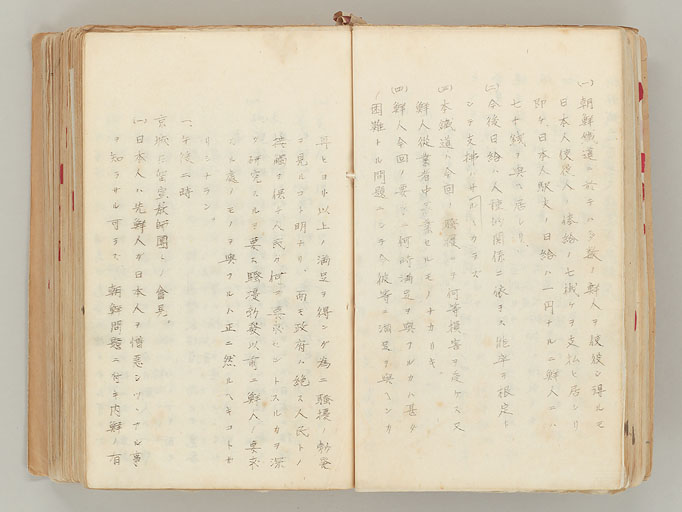 (一)朝鮮鉄道ニ於テハ多数ノ鮮人ヲ使役シ得ルモ
日本人使役人ノ俸給ノ七掛ケヲ支払ヒ居レリ
即チ、日本人駅夫ノ日給ハ一円ナルニ鮮人ニハ
七十銭ヲ与ヘ居レリ
(二)今後日給ハ人種的関係ニ依ラス能率ヲ根定トシ
テ支払ハサルヘカラズ
(三)本鉄道ハ今回ノ騒擾ニヨリ何等損害ヲ受ケス又
鮮人従業者中罷業セルモノナカリキ。
(四)鮮人今回ノ要求ニ何時満足ヲ与フルカハ甚ダ
困難ナル問題ニシテ今彼等ニ満足ヲ与ヘンカ
再ヒヨリ以上ノ満足ヲ得ンガ為ニ騒擾ノ勃発
ヲ見ルコト明ナリ、而モ政府ハ絶ヘス人民トノ
接触ヲ保チ人民ノ何ヲ要求セントスルカヲ深
ク研究スルヲ要ス騒擾勃発以前ニ鮮人ノ要求
スル処ノモノヲ与フルハ正ニ然ルヘキコトナ
リシナラン。
一、午後二時
京城ニ宣教師団トノ会見。
(一)日本人ハ先鮮人ガ日本人ヲ憎悪シツツアル事
ヲ知ラサル可ラズ 朝鮮問題ニ付キ内鮮ノ有